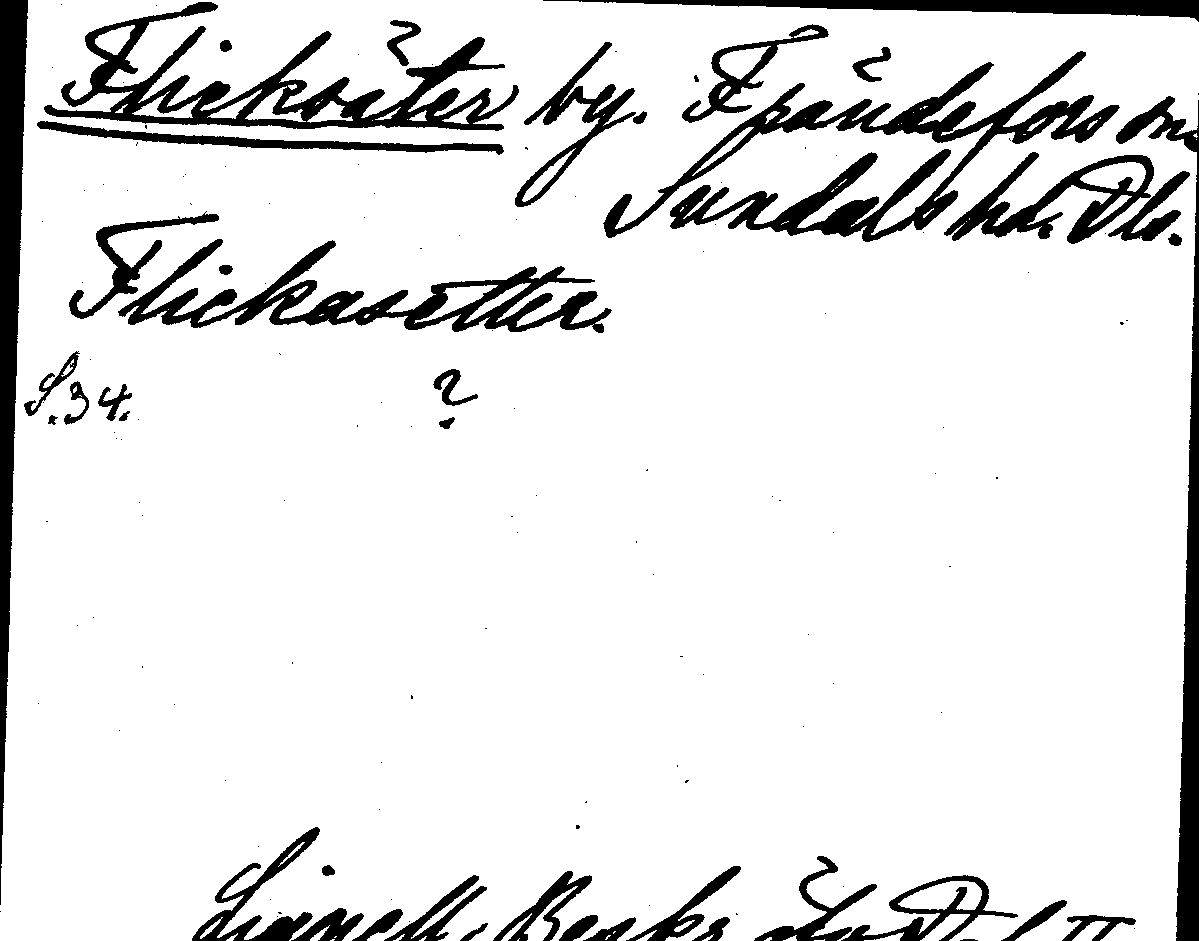 Flicksäter by. Frändefors sn.
Sundals hd. Dls.
Flickasetter.
S.34. ?
Lignell, Beskr. öv. Dal II